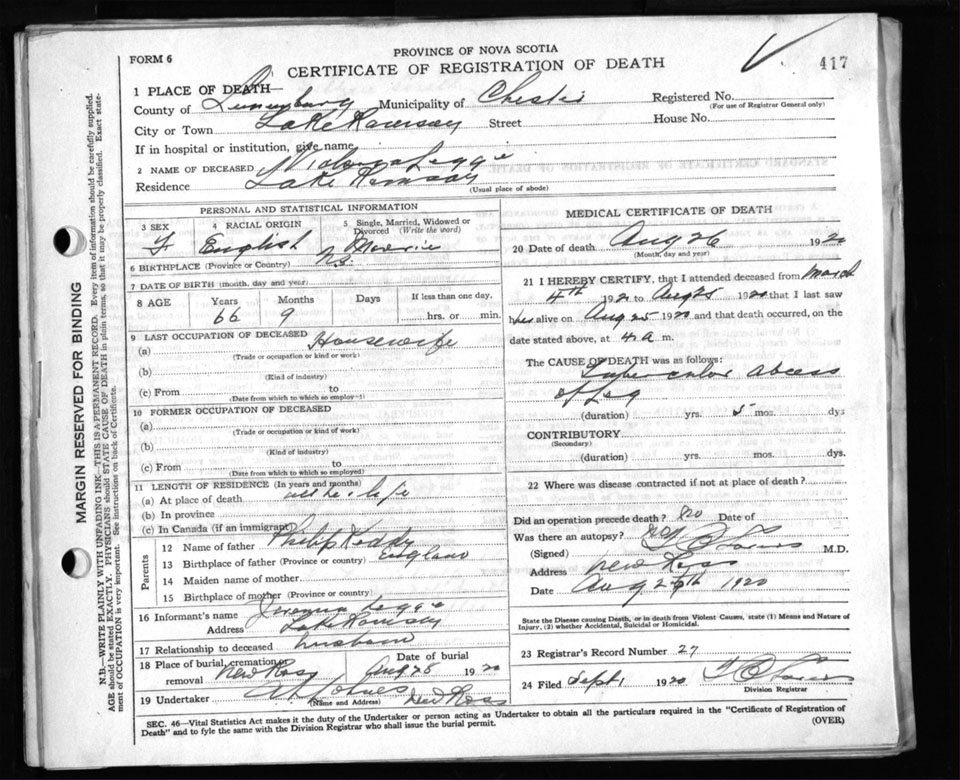 PROVINCE OF NOVA SCOTIA
FORM 6
CERTIFICATE OF REGISTRATION OF DEATH
417
1 PLACE OF DEATH—
County of Lunenburg Municipality of Chester Registered No.
(For use of Registrar General only)
City or Town Lake Ramsay Street House No.
If in hospital or institution, give name
2 NAME OF DECEASED Legge
Residence Lake Ramsay
(Usual place of abode)
PERSONAL AND STATISTICAL INFORMATION
3 SEX 4 RACIAL ORIGIN 5 Single, Married, Widowed or Divorced (Write the word)
F English
6 BIRTHPLACE (Province or Country) N.S.
7 DATE OF BIRTH (month, day and year)
8 AGE Years Months Days If less than one day,
66 9 hrs. or min.
9 LAST OCCUPATION OF DECEASED
(a) Housewife
(Trade or occupation or kind or work)
(b)
(Kind of industry)
(c) From to
(Date from which to which so employed)
10 FORMER OCCUPATION OF DECEASED
(a)
(Trade or occupation or kind of work)
(b)
(Kind of industry)
(c) From to
(Date from which to which so employed)
11 LENGTH OF RESIDENCE (In years and months)
(a) At place of death all her life
(b) In province
(c) In Canada (if an immigrant)
Parents
12 Name of father Philip Keddy
13 Birthplace of father (Province or country) England
14 Maiden name of mother
15 Birthplace of mother (Province or country)
16 Informant's name Legge
Address Lake Ramsay
17 Relationship to deceased husband
18 Place of burial, cremation, removal New Ross Date of burial Aug 28 1920
19 Undertaker New Ross
(Name and Address)
MEDICAL CERTIFICATE OF DEATH
20 Date of death Aug 26 1920
(Month, day and year)
21 I HEREBY CERTIFY, that I attended deceased from March
4th 192 to Aug 25 1920 that I last saw
her alive on Aug 25 1920 and that death occurred, on the
date stated above, at 4 a m.
The CAUSE OF DEATH was as follows:
Tubercular abcess
of Leg
(duration) yrs. 5 mos. dys
CONTRIBUTORY
(Secondary)
(duration) yrs. mos. dys.
22 Where was disease contracted if not at place of death?
Did an operation precede death? no Date of
Was there an autopsy?
(Signed) M.D.
Address New Ross
Date Aug 1920
State the Disease causing Death, or in death from Violent Causes, state (1) Means and Nature of
Injury, (2) whether Accidental, Suicidal or Homicidal.
23 Registrar's Record Number 27
24 Filed Sept 1 1920
Division Registrar
SEC. 46—Vital Statistics Act makes it the duty of the Undertaker or person acting as Undertaker to obtain all the particulars required in the "Certificate of Registration of
Death" and to fyle the same with the Division Registrar who shall issue the burial permit. (OVER)
MARGIN RESERVED FOR BINDING
N.B.—WRITE PLAINLY WITH UNFADING INK—THIS IS A PERMANENT RECORD. Every item of information should be carefully supplied.
AGE should be stated EXACTLY. PHYSICIANS should STATE CAUSE OF DEATH in plain terms, so that it may be properly classified. Exact statement of OCCUPATION is very important. See instructions on back of Certificate.